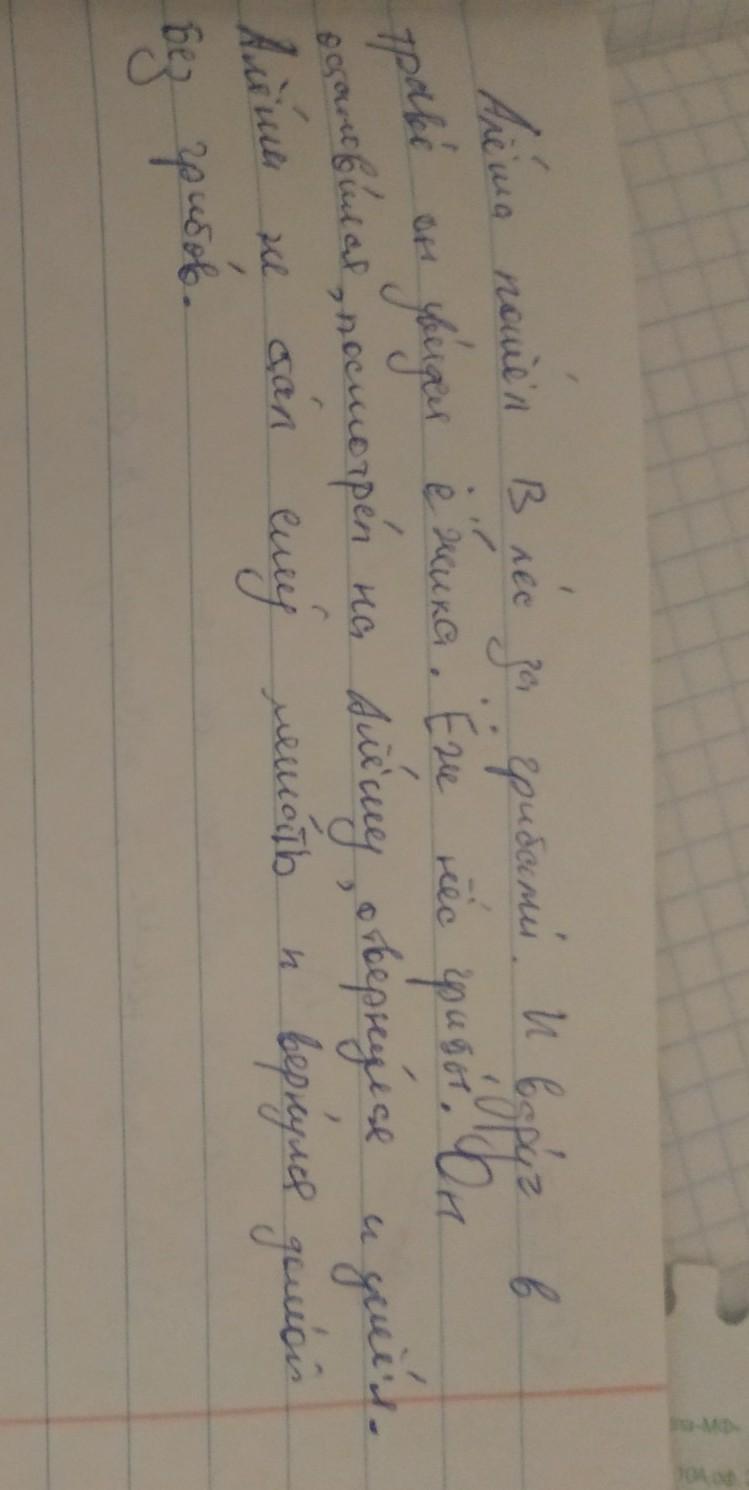 Алёша пошёл в лес за грибами. И вдруг в
траве́ он уви́дел ёжика. Ёж нёс грибы́. Он
останови́лся, посмотре́л на Алёшу, отверну́лся и ушёл.
Алёша не стал ему́ меша́ть и верну́лся домо́й
без грибо́в.